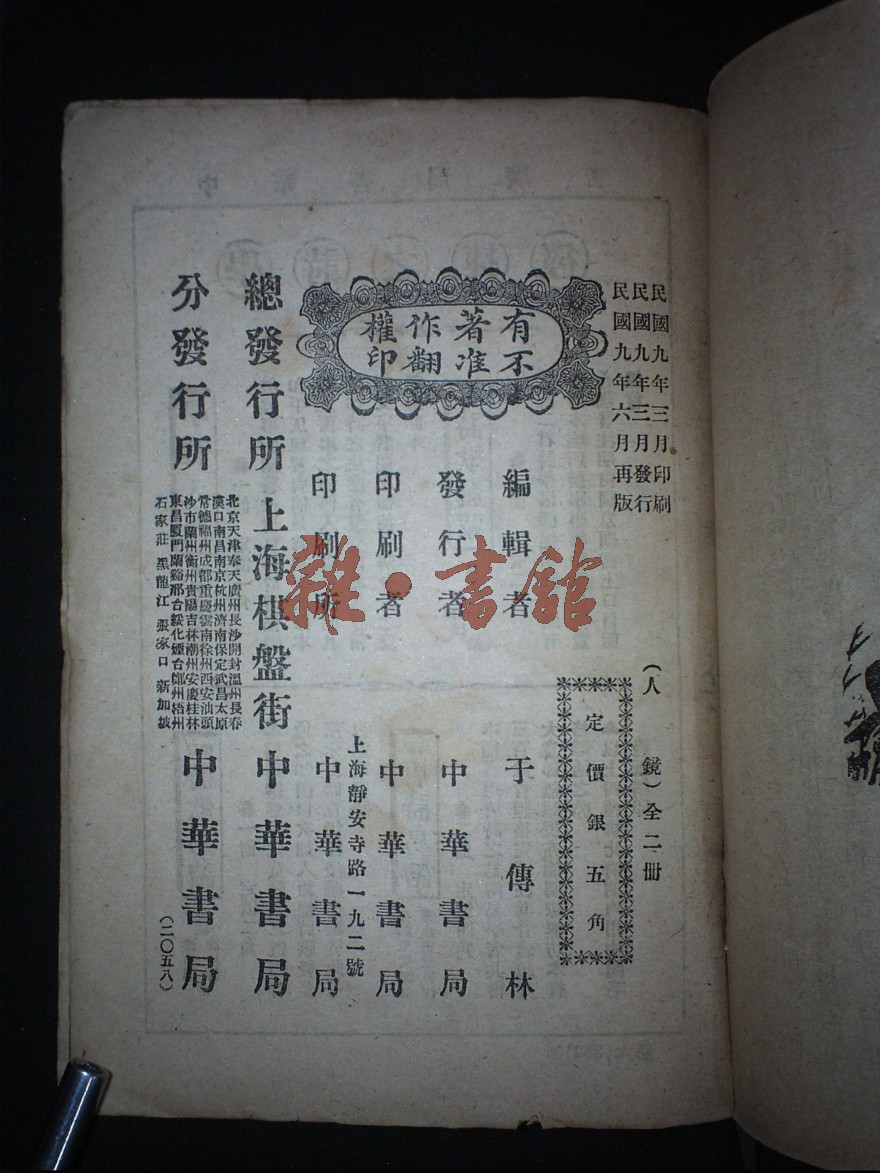 民國九年三月印刷
民國九年三月發行
民國九年六月再版
有著作權
不准翻印
(人鏡)全二冊
定價銀五角
編輯者 于傳林
發行者 中華書局
印刷者 中華書局
上海靜安寺路一九二號
印刷所 中華書局
總發行所 上海棋盤街 中華書局
分發行所
北京天津奉天廣州長沙開封溫州長春
漢口南昌南京杭州濟南保定武昌太原
常德福州成都重慶雲南徐州西安汕頭
沙市蘭州衡州貴陽吉林潮州安慶桂林
東昌廈門蘭谿邢台綏化煙台鄭州梧州
石家莊 黑龍江 張家口 新加坡
中華書局
(二〇五八)
雜·書館